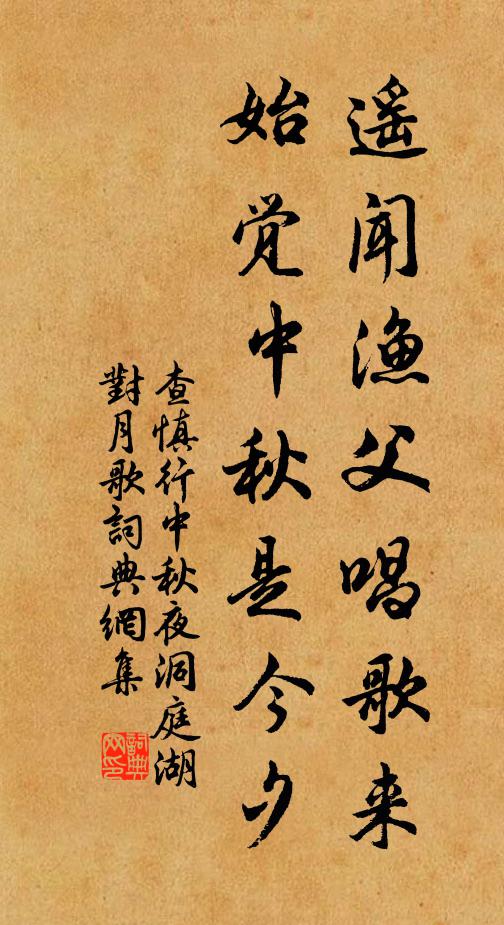 遥闻渔父唱歌来
始觉中秋是今夕
查慎行中秋夜洞庭湖
對月歌詞典網集
詞典
网印